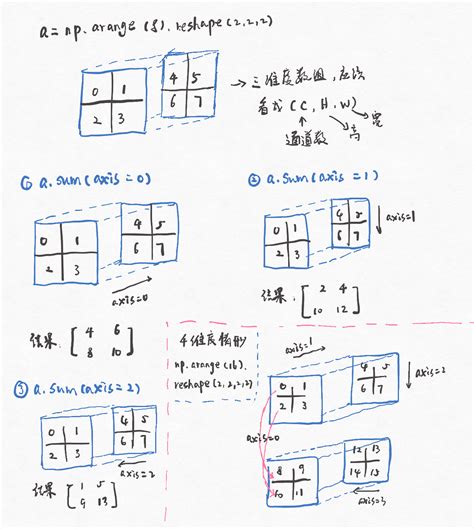 a = np.arange(8).reshape(2,2,2)
0 1
2 3
4 5
6 7
→ 三维度数组,应该
看成 (C, H, W)
通道数 高 宽
① a.sum(axis=0)
0 1
2 3
4 5
6 7
axis=0
结果: [4 6
8 10]
② a.sum(axis=1)
0 1
2 3
4 5
6 7
↓axis=1
结果: [2 4
10 12]
③ a.sum(axis=2)
0 1
2 3
4 5
6 7
axis=2
结果 [1 5
9 13]
4维度情形
np.arange(16).
reshape(2,2,2,2)
axis=1
0 1
2 3
4 5
6 7
↓axis=2
axis=0
8 9
10 11
12 13
14 15
axis=3